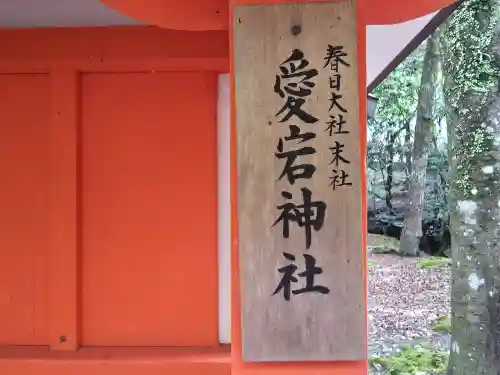 春日大社末社
愛宕神社